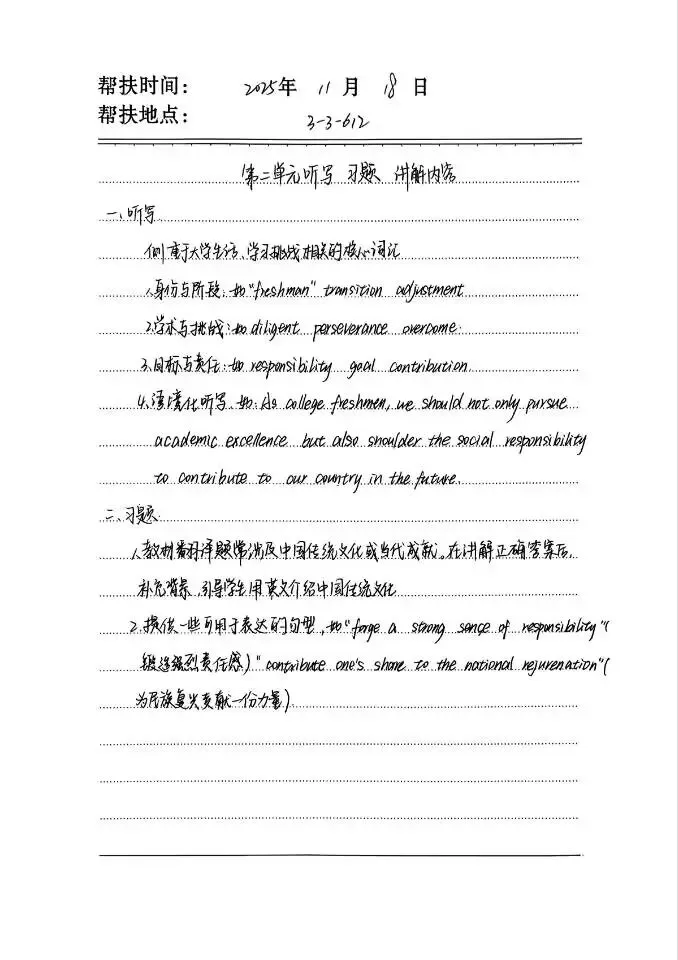 帮扶时间： 2025年 11 月 18 日
帮扶地点： 3-3-612
第二单元听写 习题 讲解内容
一、听写
侧重于大学生活、学习挑战相关的核心词汇
1.身份与阶段：如"freshman" transition adjustment
2.学术与挑战：如diligent perseverance overcome
3.目标与责任：如 responsibility goal contribution
4.语境化听写、如：As college freshmen, we should not only pursue
academic excellence but also shoulder the social responsibility
to contribute to our country in the future.
二、习题
1.教材翻译题常涉及中国传统文化或当代成就。在讲解正确答案后，
补充背景，引导学生用英文介绍中国传统文化
2.提供一些可用于表达的句型，如"forge a strong sance of responsibility"(
锻造强烈责任感)"contribute one's share to the national rejurenation"(
为民族复兴贡献一份力量)